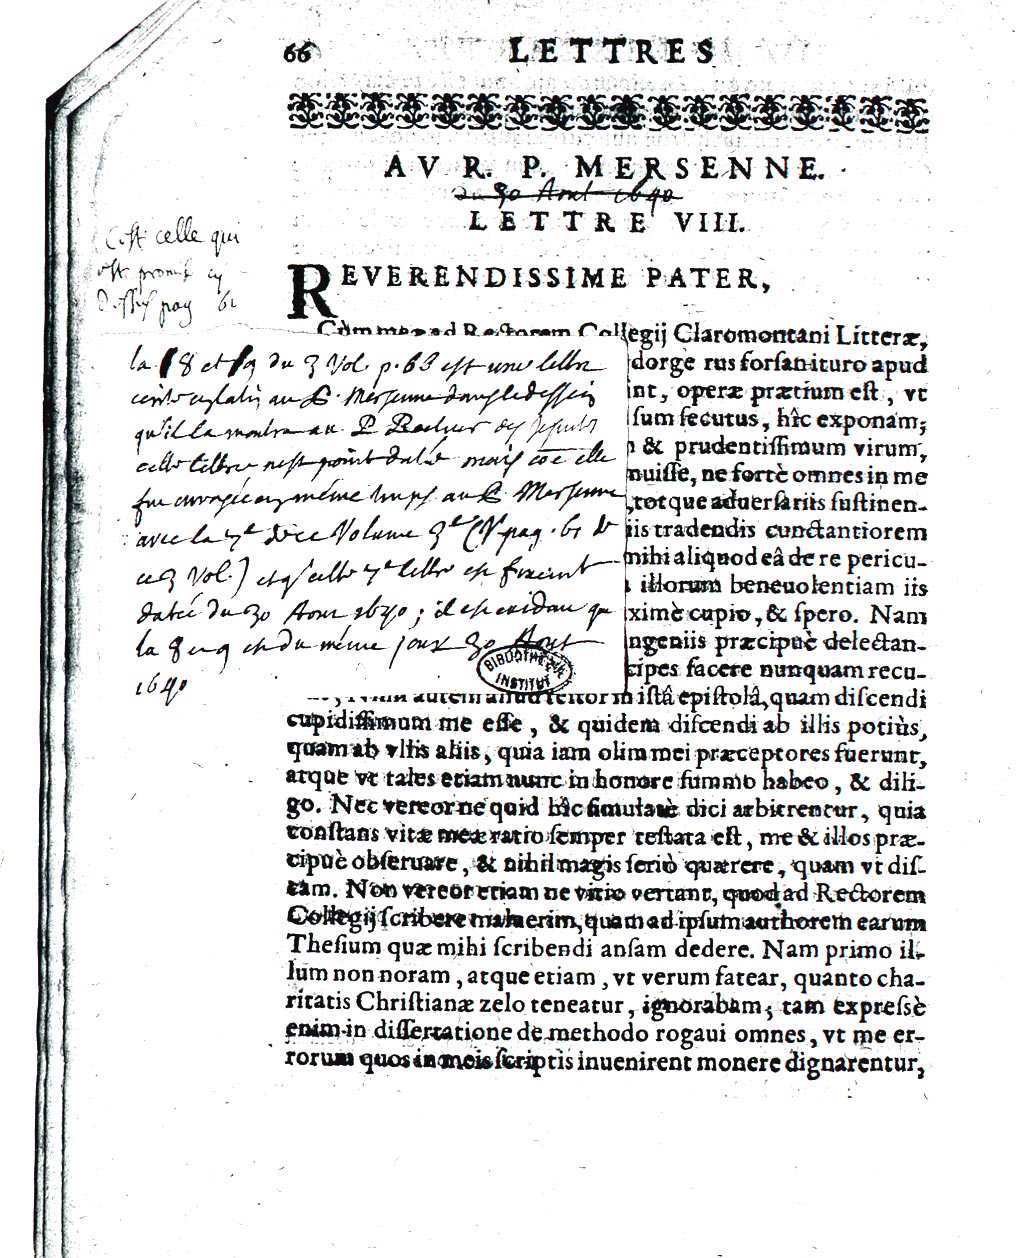 66 LETTRES
AV R. P. MERSENNE.
du 30 Aout 1640
LETTRE VIII.
C'est celle qui
est promise cy
dessus pag 61
REVERENDISSIME PATER,
Cùm meæ ad Rectorem Collegij Claromontani Litteræ,
la 8 et 9 du 3 Vol. p. 63 est une lettre
ecrite en latin au P. Mersenne dans le dessein
qu'il la montre au P. Recteur des Jesuites
cette lettre n'est point datée mais coe elle
fut envoyée en même temps au P. Mersenne
avec la 7e de ce Volume 3e (V. pag. 61 de
ce 3 Vol.) et q' cette 7e lettre est
datée du 30 Aout 1640; il est evident que
la 8 et 9 est du même jour 30 Aout
1640
BIBLIOTHEQUE
INSTITUT
dorge rus forsan ituro apud
int, operæ prætium est, vt
sum secutus, hîc exponam;
& prudentissimum virum,
nuisse, ne fortè omnes in me
, tot que aduersariis sustinen-
iis tradendis cunctantiorem
mihi aliquod eâ de re pericu-
illorum beneuolentiam iis
ximè cupio, & spero. Nam
ngeniis præcipuè delectan-
cipes facere nunquam recu-
autem aliud petitor in istâ epistolâ, quam discendi
cupidissimum me esse, & quidem discendi ab illis potiùs,
quam ab vllis aliis, quia iam olim mei præceptores fuerunt,
atque vt tales etiam nunc in honore summo habeo, & dili-
go. Nec vereor ne quid hîc simulatè dici arbitrentur, quia
constans vitæ meæ ratio semper testata est, me & illos præ-
cipuè obseruare, & nihil magis seriò quærere, quam vt dis-
cam. Non vereor etiam ne vitio vertant, quod ad Rectorem
Collegij scribere maluerim, quam ad ipsum authorem earum
Thesium quæ mihi scribendi ansam dedere. Nam primo il-
lum non noram, atque etiam, vt verum fatear, quanto cha-
ritatis Christianæ zelo teneatur, ignorabam; tam expressè
enim in dissertatione de methodo rogaui omnes, vt me er-
rorum quos in meis scriptis inuenirent monere dignarentur,